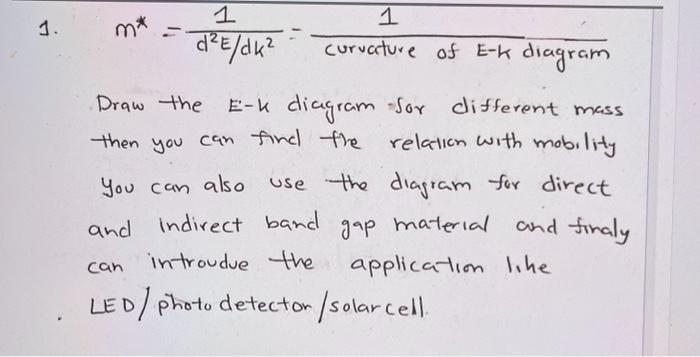 1. m* = 1 / d²E/dk² = 1 / curvature of E-k diagram
Draw the E-k diagram for different mass
then you can find the relation with mobility
you can also use the diagram for direct
and indirect band gap material and finaly
can introudue the application like
LED/photo detector/solar cell.